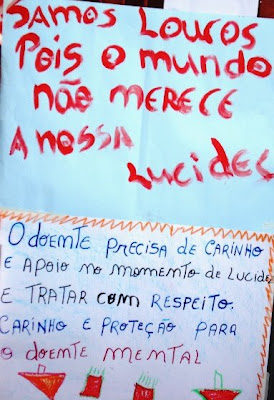 SAMOS LOUCOS
POIS O MUNDO
NÃO MERECE
A NOSSA
LUCIDEC
O DOENTE PRECISA DE CARINHO
E APOIO NO MOMENTO DE LUCIDE
E TRATAR COM RESPEITO.
CARINHO E PROTEÇÃO PARA
O DOENTE MENTAL